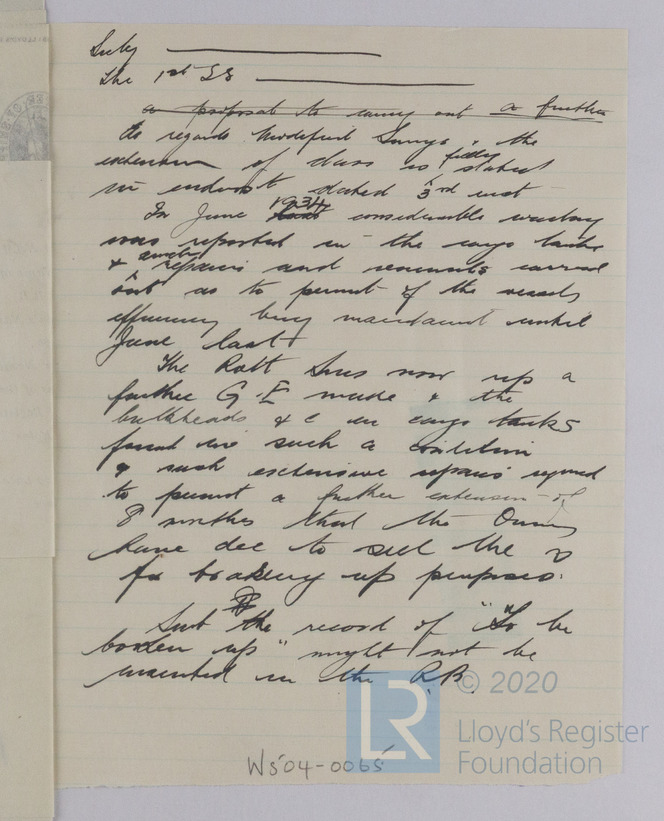 Subg
The 1st SS
a proposal to carry out a further
As regards modified Survys, the
extension of class is fully stated
in endorst dated 3rd inst
In June 1934 last considerable wastage
was reported in the cargo tanks
& such repairs and renewals carried
out as to permit of the vessels
efficiency being maintained until
June last
The Rott Survs now rep a
further G.E made & the
bulkheads &c in cargo tanks
found in such a condition
& such extensive repairs required
to permit a further extension of
8 months that the Owners
have dec to sell the
for breaking up purposes.
Subt the record of "To be
broken up" might not be
inserted in the R.B.
W504-0065
LR © 2020
Lloyd's Register
Foundation